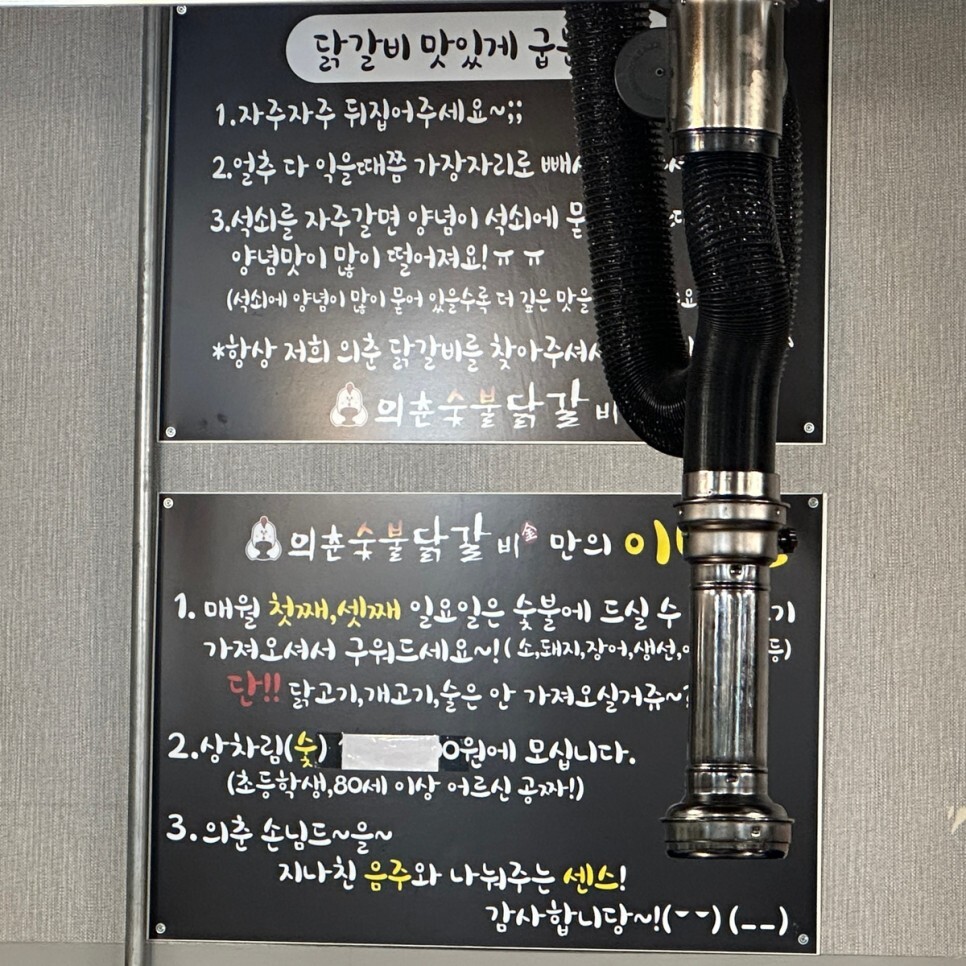 닭갈비 맛있게
1.자주자주 뒤집어주세요~;;
2.얼추 다 익을때쯤 가장자리로
3.석쇠를 자주갈면 양념이 석쇠에
양념맛이 많이 떨어져요!ㅠ ㅠ
(석쇠에 양념이 많이 묻어 있을수록 더 깊은 맛을
*항상 저희 의춘 닭갈비를
의춘숯불닭갈비
의춘숯불닭갈비金 만의
1. 매월 첫째,셋째 일요일은 숯불에 드실 수
가져오셔서 구워드세요~!(소,돼지,장어,생선, 등)
단!! 닭고기,개고기,술은 안 가져오실거쥬~?
2.상차림(숯) 0원에 모십니다.
(초등학생,80세 이상 어르신 공짜!)
3. 의춘 손님드~을~
지나친 음주와 나눠주는 센스!
감사합니당~!(--)(__)